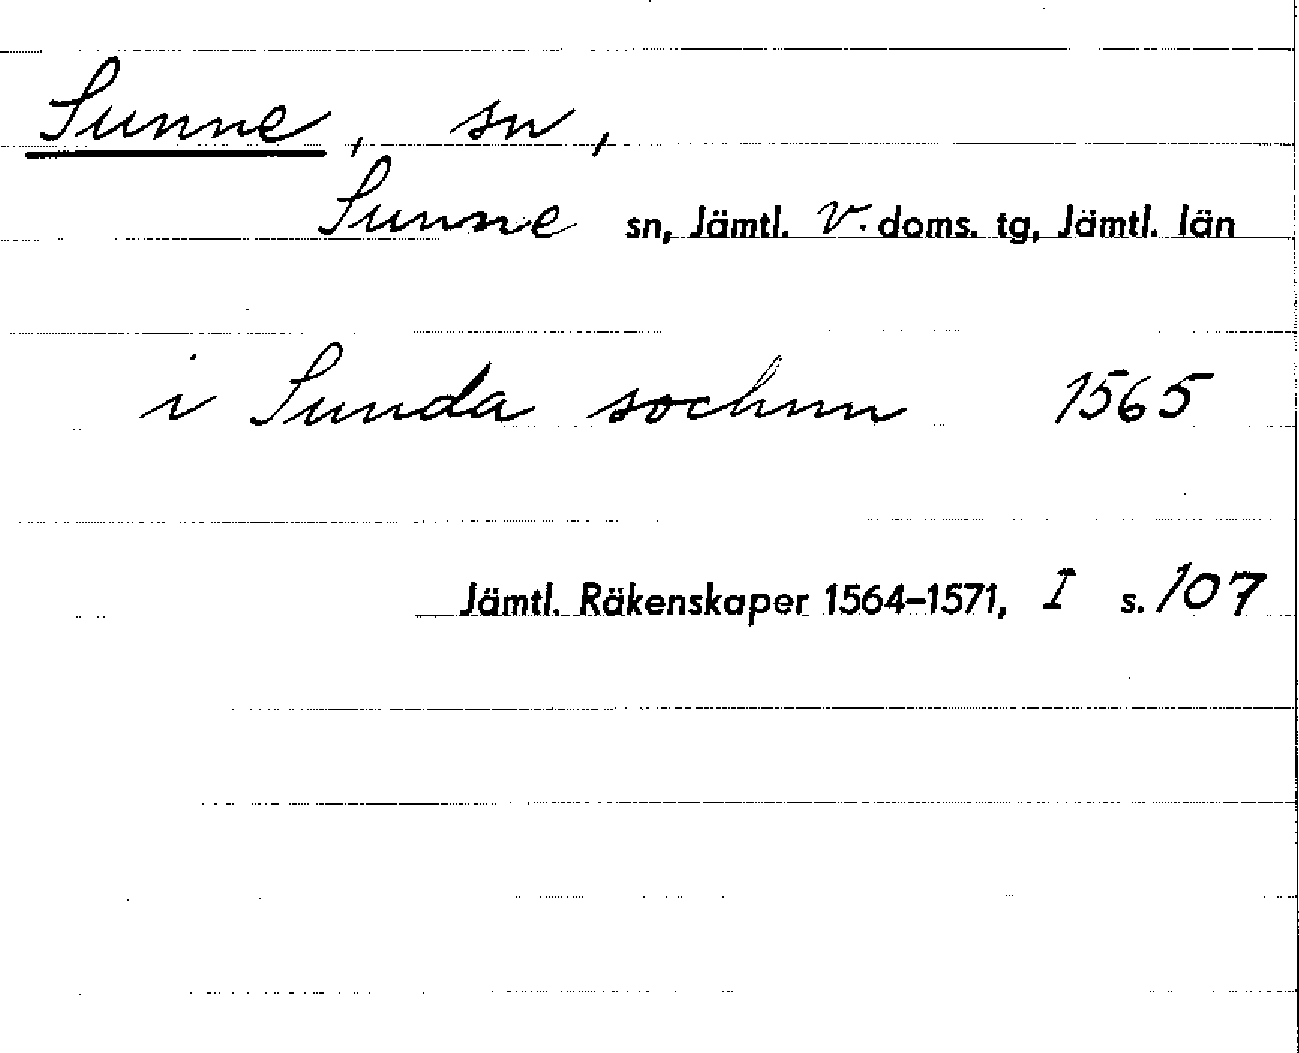 Sunne, sn,
Sunne sn, Jämtl. v. doms. tg, Jämtl. län
i Sunda sochnn 1565
Jämtl. Räkenskaper 1564–1571, I s. 107